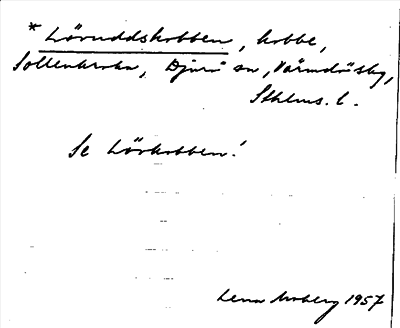 * Lövuddskobben, kobbe,
Sollenkroka, Djurö sn, Värmdö skg,
Sthlms. l.
Se Lövkobben!
Lena Moberg 1957